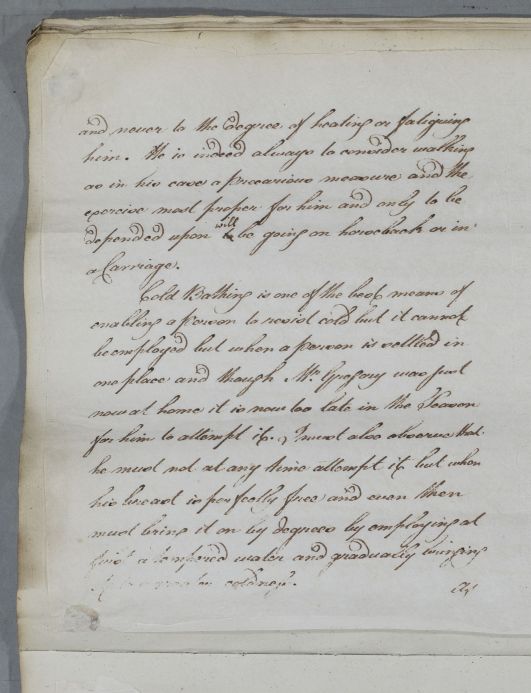 and never to the degree of heating or fatiguing
him. He is indeed always to consider walking
as in his case a precarious measure and the
exercise most proper for him and only to be
depended upon will be going on horseback or in
a Carriage.
Cold Bathing is one of the best means of
enabling a person to resist cold but it cannot
be employed but when a person is settled in
one place and though Mr. Gregory was just
now at home it is now too late in the Season
for him to attempt it. I must also observe that
he must not at any time attempt it but when
his breast is perfectly free and even then
must bring it on by degrees by employing at
first a tempered water and gradually bringing
it to a greater coldness.